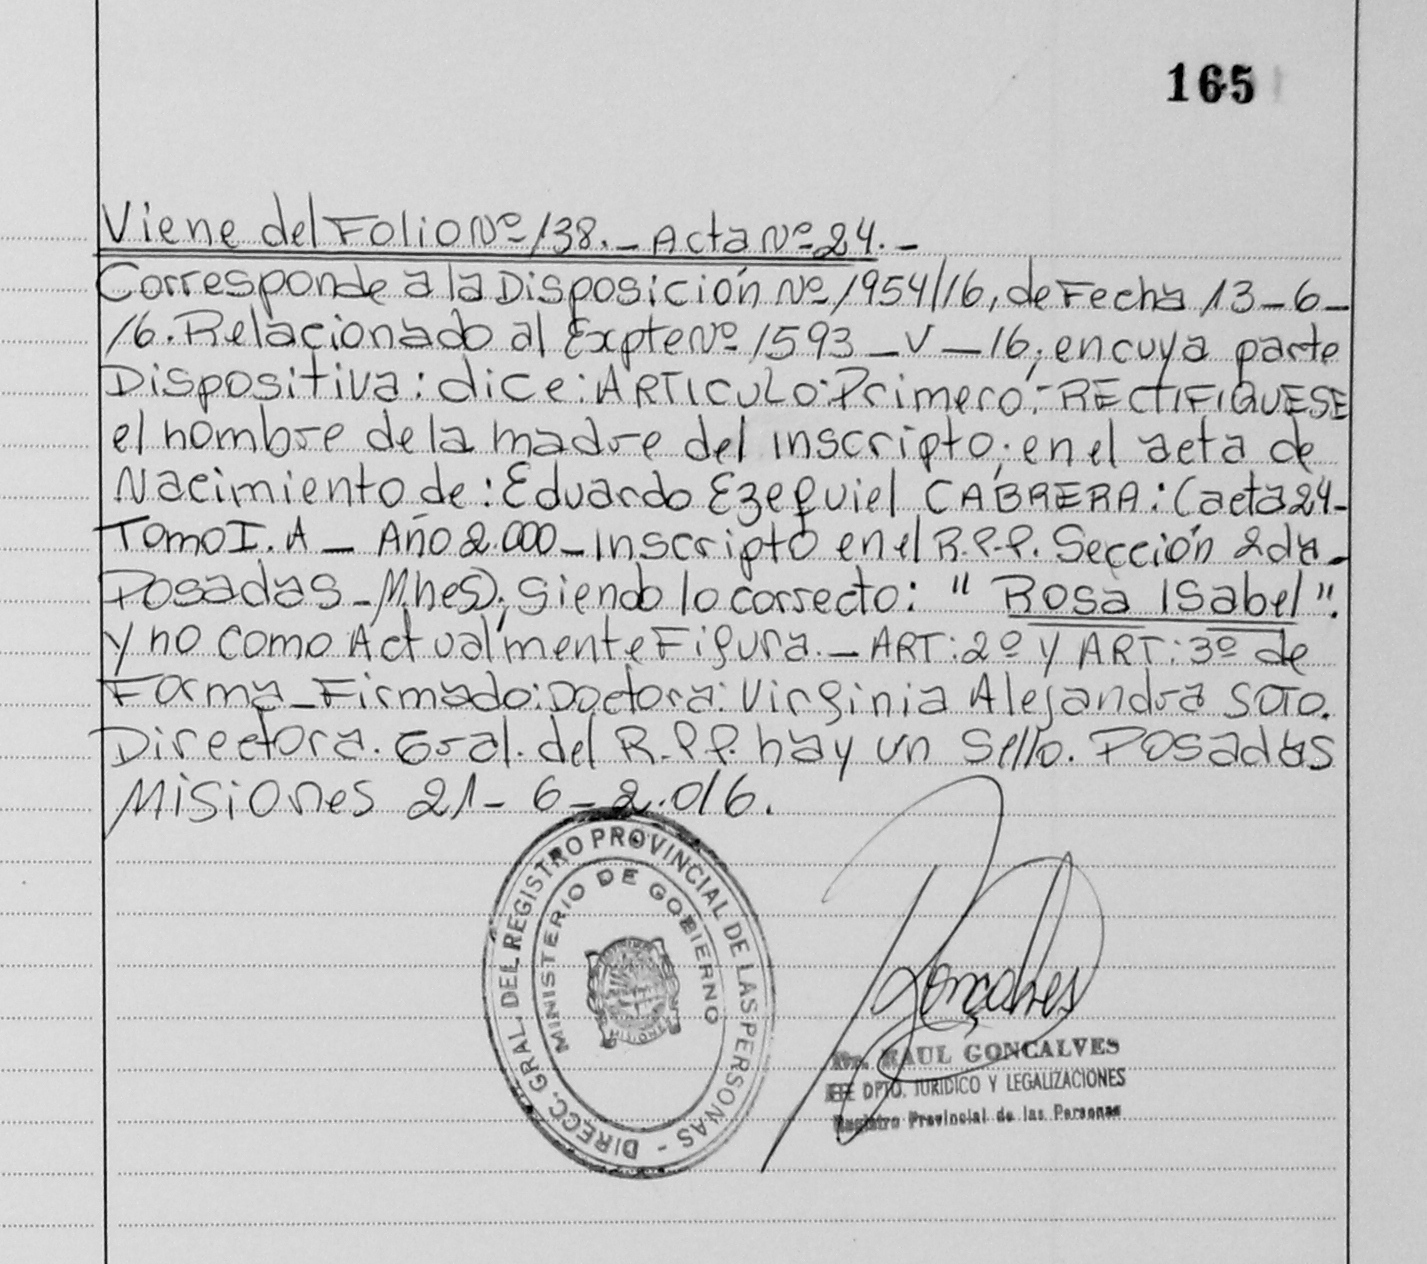 165
Viene del Folio Nº 138. - Acta Nº 24. -
Corresponde a la Disposición Nº 1954/16, de Fecha 13-6-
16. Relacionado al Expte Nº 1593-V-16; en cuya parte
Dispositiva: dice: ARTICULO: Primero: RECTIFIQUESE
el nombre de la madre del inscripto; en el acta de
Nacimiento de: Eduardo Ezequiel CABRERA: (acta 24-
Tomo I. A - Año 2.000 - Inscripto en el R.P.P. Sección 2da -
Posadas - Mnes); siendo lo correcto: "Rosa Isabel".
y no como Actualmente Figura. - ART: 2º y ART: 3º de
Forma - Firmado: Doctora: Virginia Alejandra SOTO.
Directora. Gral. del R.P.P. hay un Sello. Posadas
Misiones 21-6-2.016.
DIRECC. GRAL. DEL REGISTRO PROVINCIAL DE LAS PERSONAS -
MINISTERIO DE GOBIERNO
Goncalves
Dr. RAUL GONCALVES
JEFE DPTO. JURIDICO Y LEGALIZACIONES
Registro Provincial de las Personas